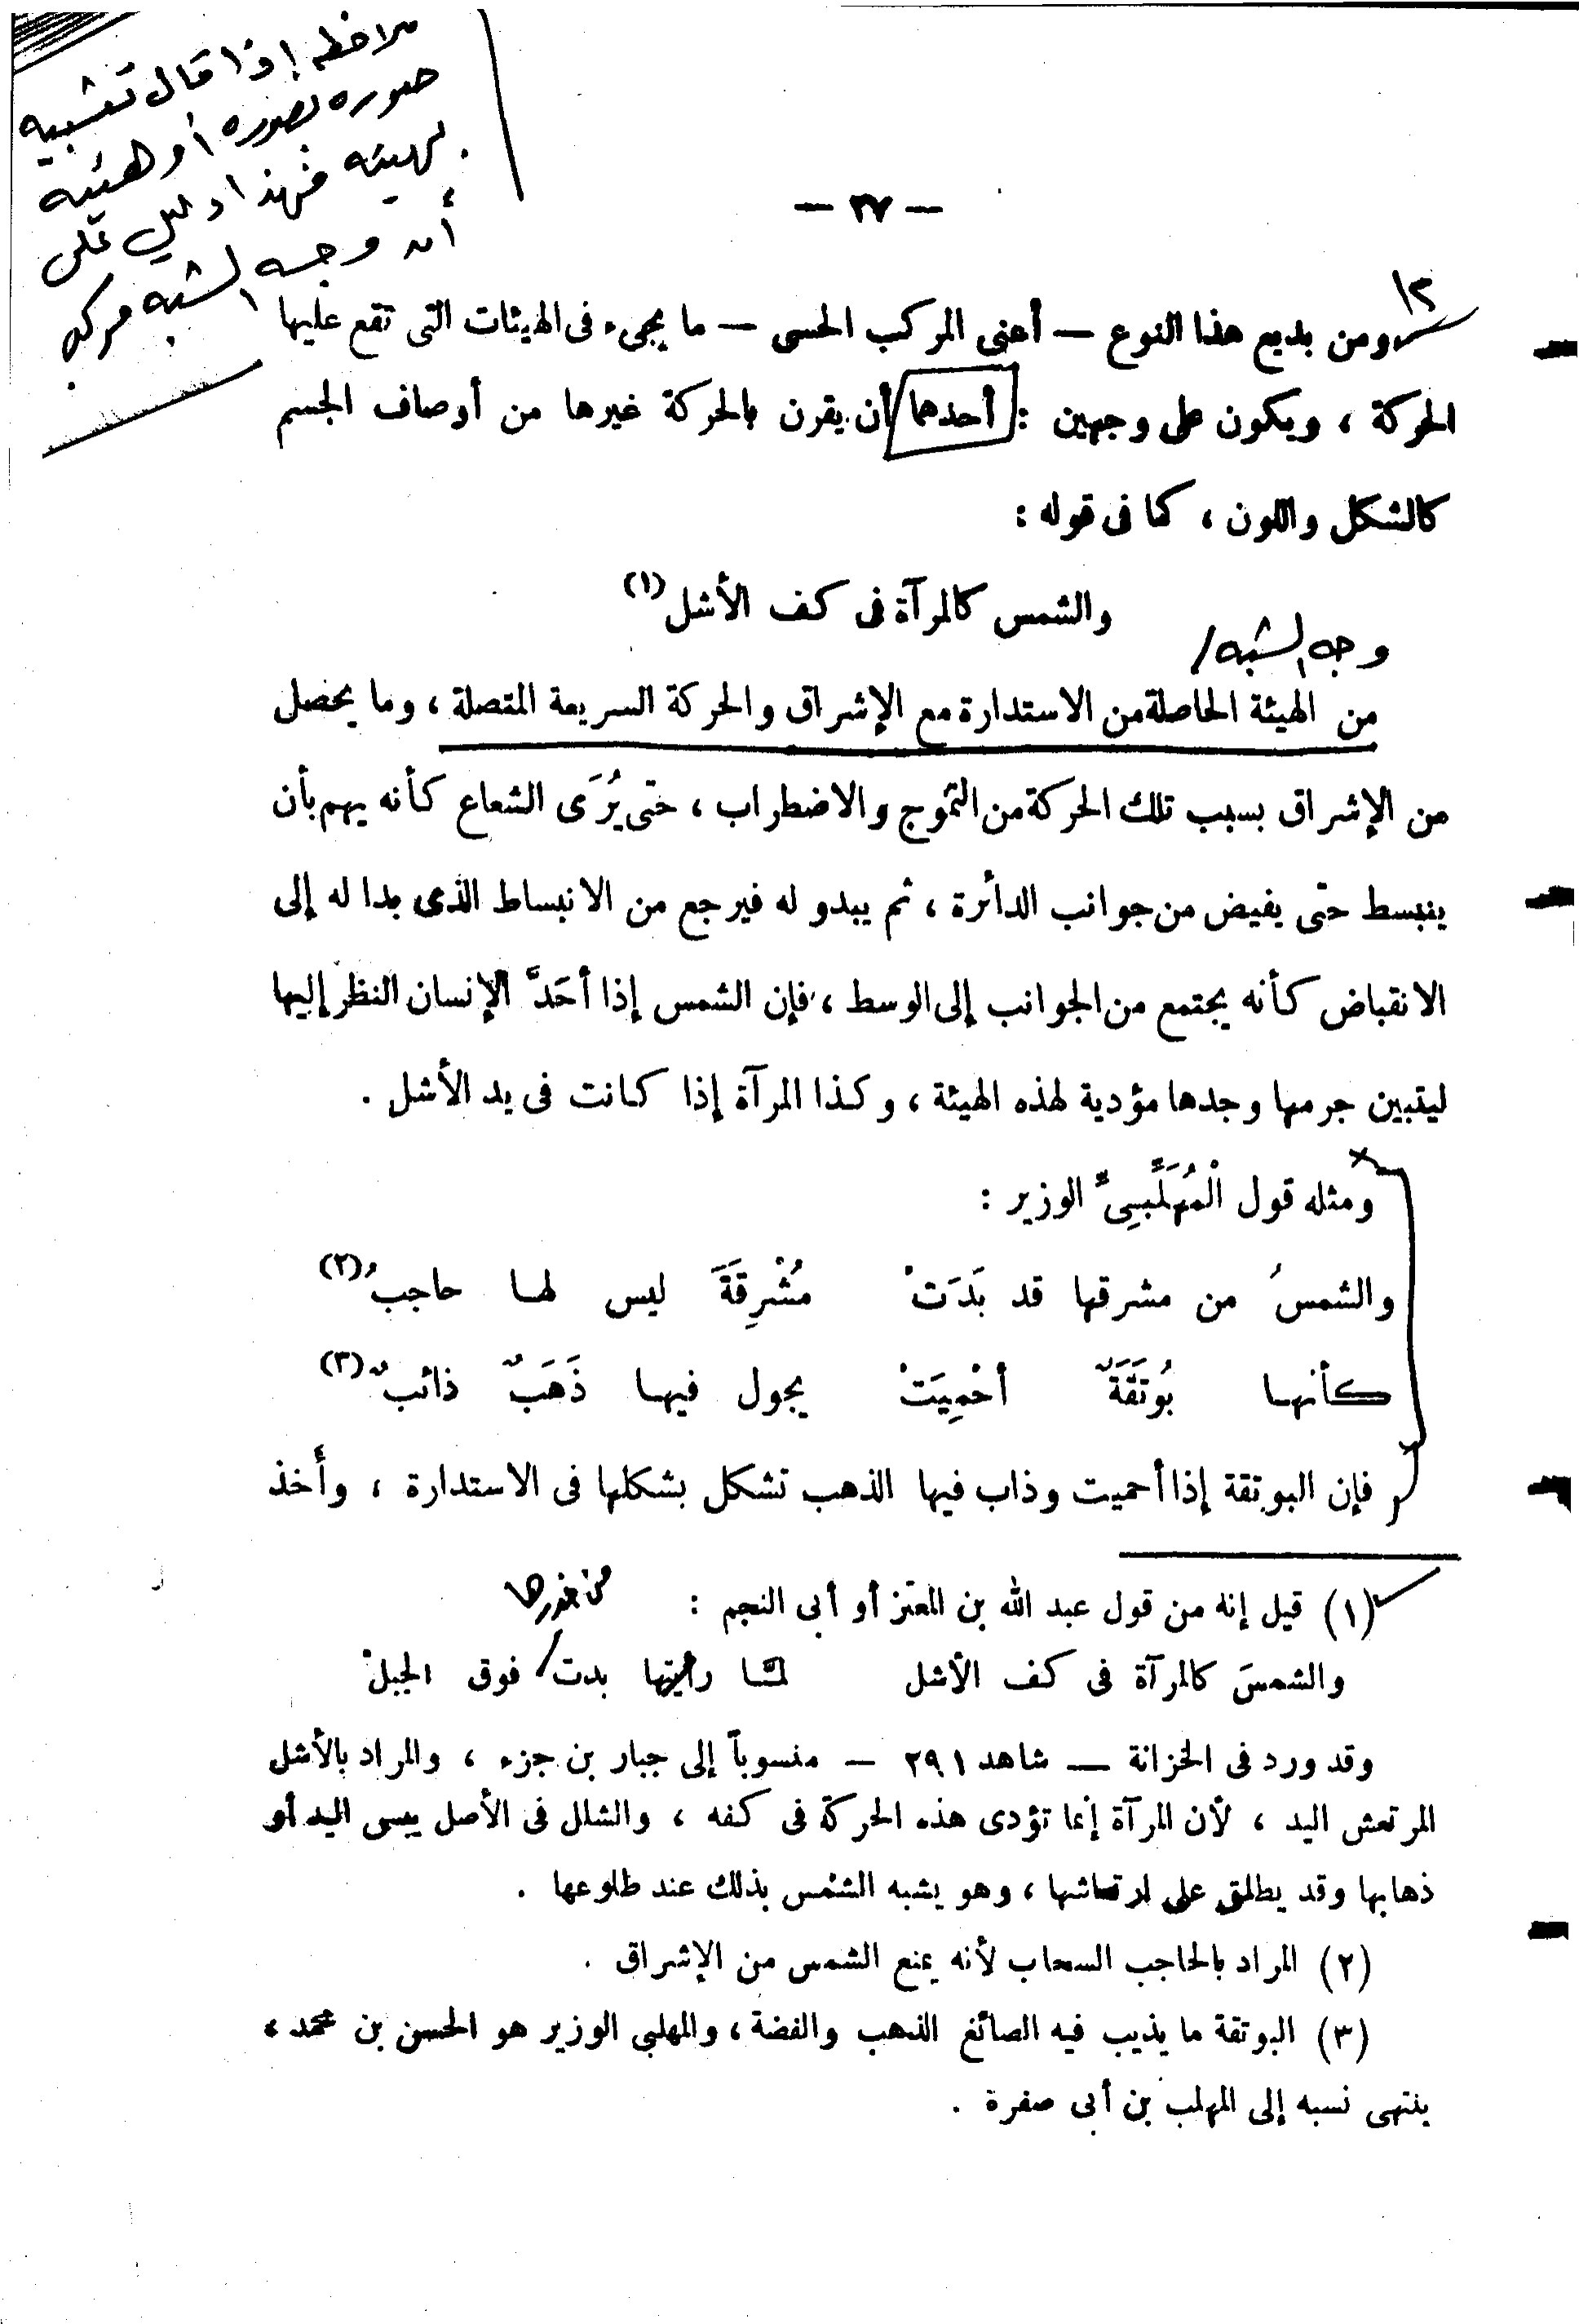 ملاحظه إذا قال تشبيه
صوره بصوره أو هيئه
بهيئه فهذا دليل على
أن وجه الشبه مركب
— ٣٧ —
١٢
ومن بديع هذا النوع — أعنى المركب الحسى — ما يجىء فى الهيئات التى تقع عليها
الحركة ، ويكون على وجهين : أحدهما أن يقرن بالحركة غيرها من أوصاف الجسم
كالشكل واللون ، كما فى قوله :
والشمس كالمرآة فى كف الأشل (١)
وجه الشبه /
من الهيئة الحاصلة من الاستدارة مع الإشراق والحركة السريعة المتصلة ، وما يحصل
من الإشراق بسبب تلك الحركة من التموج والاضطراب ، حتى يُرَى الشعاع كأنه يهم بأن
ينبسط حتى يفيض من جوانب الدائرة ، ثم يبدو له فيرجع من الانبساط الذى بدا له إلى
الانقباض كأنه يجتمع من الجوانب إلى الوسط ، فإن الشمس إذا أحَدَّ الإنسان النظر إليها
ليتبين جرمها وجدها مؤدية لهذه الهيئة ، وكذا المرآة إذا كانت فى يد الأشل .
ومثله قول الْمُهَلَّبِىِّ الوزير :
والشمسُ من مشرقها قد بَدَتْ مُشْرِقَةً ليس لها حاجبُ (٢)
كأنها بُوتَقَةٌ أحْمِيَتْ يجول فيها ذَهَبٌ ذائبُ (٣)
فإن البوتقة إذا أحميت وذاب فيها الذهب تشكل بشكلها فى الاستدارة ، وأَخذ
(١) قيل إنه من قول عبد الله بن المعتز أو أبى النجم :
من خدرها
والشمسَ كالمرآة فى كف الأشل لمَّا رأيتها بدت / فوق الجبلْ
وقد ورد فى الخزانة — شاهد ٢٩١ — منسوباً إلى جبار بن جزء ، والمراد بالأشل
المرتعش اليد ، لأن المرآة إنما تؤدى هذه الحركة فى كفه ، والشلل فى الأصل يبس اليد أو
ذهابها وقد يطلق على ارتعاشها ، وهو يشبه الشمس بذلك عند طلوعها .
(٢) المراد بالحاجب السحاب لأنه يمنع الشمس من الإشراق .
(٣) البوتقة ما يذيب فيه الصائغ الذهب والفضة ، والمهلبى الوزير هو الحسن بن محمد ،
ينتهى نسبه إلى المهلب بن أبى صفرة .